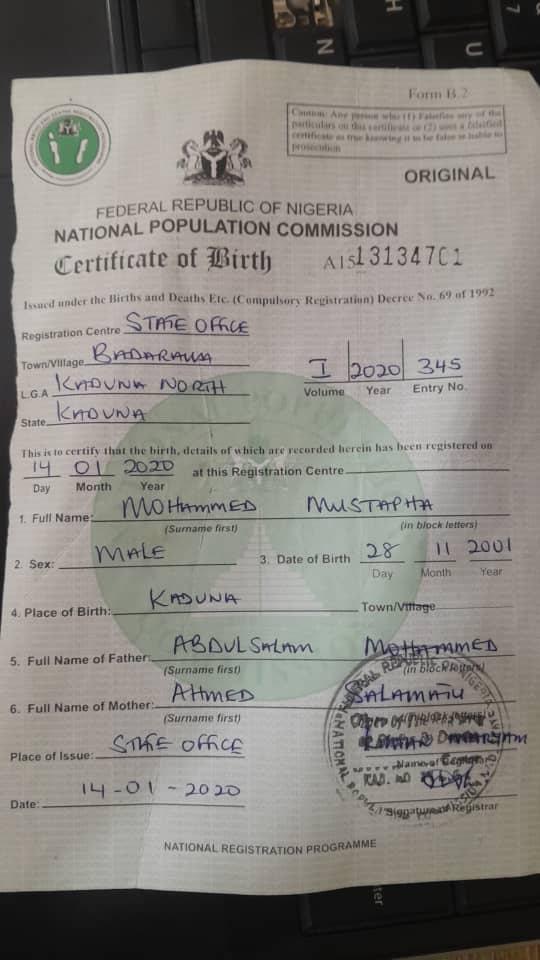 Form B.2
Caution: Any person who (1) Falsifies any of the
particulars on this certificate or (2) uses a falsified
certificate as true knowing it to be false is liable to
prosecution
ORIGINAL
FEDERAL REPUBLIC OF NIGERIA
NATIONAL POPULATION COMMISSION
Certificate of Birth
A1513134701
Issued under the Births and Deaths Etc. (Compulsory Registration) Decree No. 69 of 1992
Registration Centre STATE OFFICE
Town/Village BADARAWA
L.G.A KADUNA NORTH
State KADUNA
I 2020 345
Volume Year Entry No.
This is to certify that the birth, details of which are recorded herein has been registered on
14 01 2020 at this Registration Centre
Day Month Year
1. Full Name: MOHAMMED MUSTAPHA
(Surname first) (in block letters)
2. Sex: MALE 3. Date of Birth 28 11 2001
Day Month Year
4. Place of Birth: KADUNA Town/Village
5. Full Name of Father: ABDULSALAM MOHAMMED
(Surname first) (in block letters)
6. Full Name of Mother: AHMED SALAMATU
(Surname first) (in block letters)
Place of Issue: STATE OFFICE
Name of Registrar
Date: 14-01-2020
Signature of Registrar
NATIONAL REGISTRATION PROGRAMME
N
H
U
7
ter